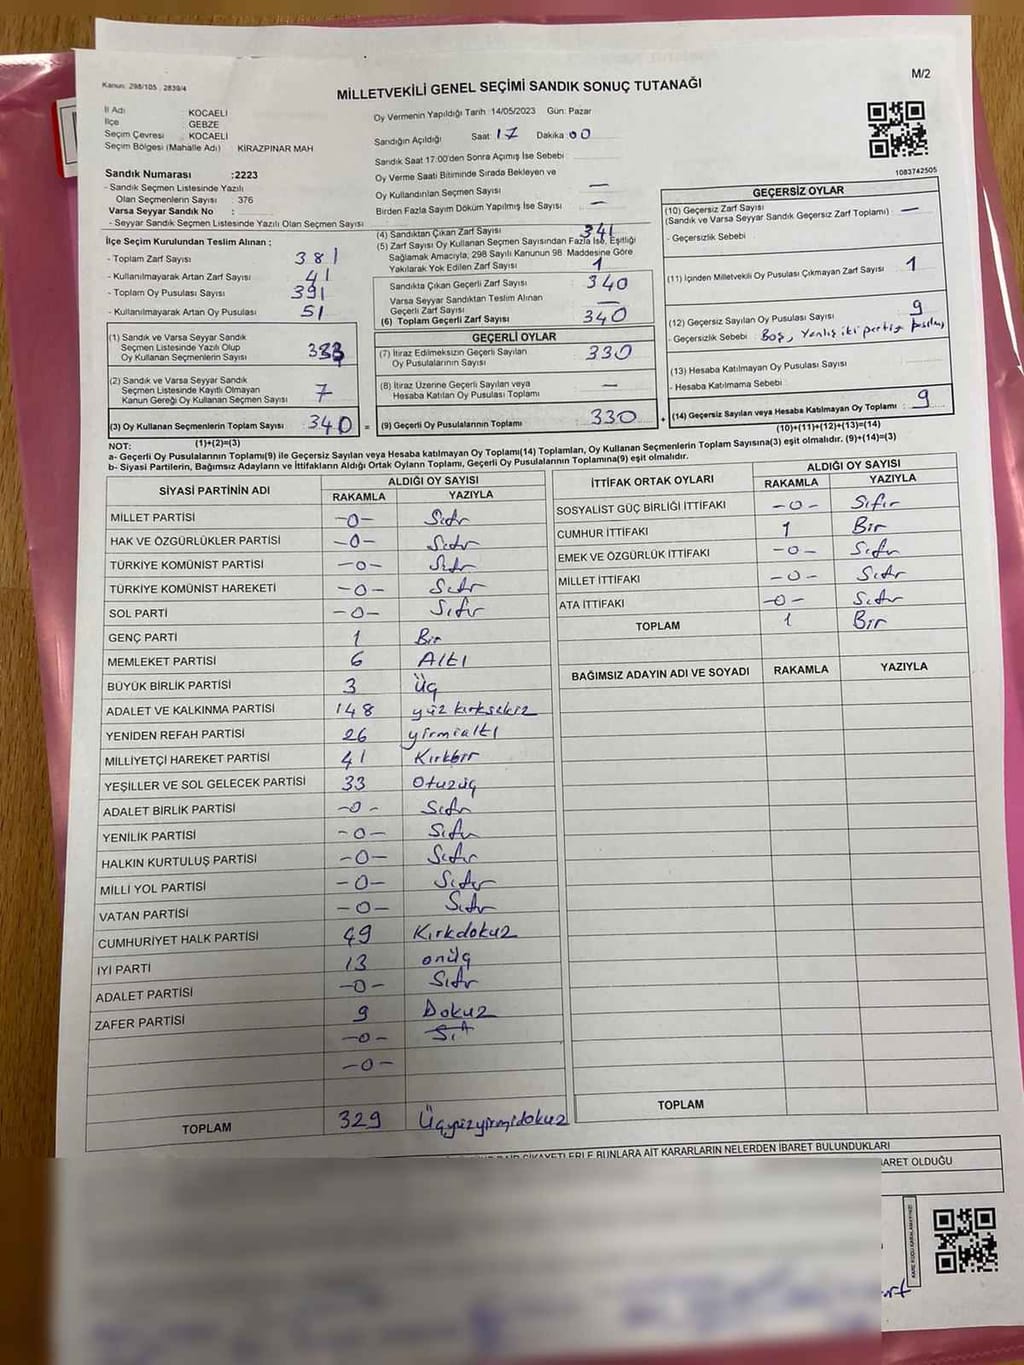 Kanun: 298/105 , 2839/4
MİLLETVEKİLİ GENEL SEÇİMİ SANDIK SONUÇ TUTANAĞI
M/2
İl Adı KOCAELİ
İlçe GEBZE
Seçim Çevresi KOCAELİ
Seçim Bölgesi (Mahalle Adı) KİRAZPINAR MAH
Sandık Numarası :2223
- Sandık Seçmen Listesinde Yazılı
Olan Seçmenlerin Sayısı : 376
Varsa Seyyar Sandık No :
- Seyyar Sandık Seçmen Listesinde Yazılı Olan Seçmen Sayısı
Oy Vermenin Yapıldığı Tarih :14/05/2023 Gün: Pazar
Sandığın Açıldığı Saat: 17 Dakika 00
Sandık Saat 17:00'den Sonra Açımış İse Sebebi
Oy Verme Saati Bitiminde Sırada Bekleyen ve
Oy Kullandırılan Seçmen Sayısı —
Birden Fazla Sayım Döküm Yapılmış İse Sayısı —
1083742505
İlçe Seçim Kurulundan Teslim Alınan :
- Toplam Zarf Sayısı 381
- Kullanılmayarak Artan Zarf Sayısı 41
- Toplam Oy Pusulası Sayısı 391
- Kullanılmayarak Artan Oy Pusulası 51
(1) Sandık ve Varsa Seyyar Sandık
Seçmen Listesinde Yazılı Olup
Oy Kullanan Seçmenlerin Sayısı
(2) Sandık ve Varsa Seyyar Sandık
Seçmen Listesinde Kayıtlı Olmayan
Kanun Gereği Oy Kullanan Seçmen Sayısı 7
(3) Oy Kullanan Seçmenlerin Toplam Sayısı 340 =
(1)+(2)=(3)
(4) Sandıktan Çıkan Zarf Sayısı 341
(5) Zarf Sayısı Oy Kullanan Seçmen Sayısından Fazla İse, Eşitliği
Sağlamak Amacıyla, 298 Sayılı Kanunun 98. Maddesine Göre
Yakılarak Yok Edilen Zarf Sayısı 1
Sandıkta Çıkan Geçerli Zarf Sayısı 340
Varsa Seyyar Sandıktan Teslim Alınan
Geçerli Zarf Sayısı —
(6) Toplam Geçerli Zarf Sayısı 340
GEÇERLİ OYLAR
(7) İtiraz Edilmeksizin Geçerli Sayılan
Oy Pusulalarının Sayısı 330
(8) İtiraz Üzerine Geçerli Sayılan veya
Hesaba Katılan Oy Pusulası Toplamı —
(9) Geçerli Oy Pusulalarının Toplamı 330 +
GEÇERSİZ OYLAR
(10) Geçersiz Zarf Sayısı
(Sandık ve Varsa Seyyar Sandık Geçersiz Zarf Toplamı) —
- Geçersizlik Sebebi
(11) İçinden Milletvekili Oy Pusulası Çıkmayan Zarf Sayısı 1
(12) Geçersiz Sayılan Oy Pusulası Sayısı 9
- Geçersizlik Sebebi Boş, Yanlış iki partiye
(13) Hesaba Katılmayan Oy Pusulası Sayısı
- Hesaba Katılmama Sebebi
(14) Geçersiz Sayılan veya Hesaba Katılmayan Oy Toplamı : 9
(10)+(11)+(12)+(13)=(14)
NOT:
a- Geçerli Oy Pusulalarının Toplamı(9) ile Geçersiz Sayılan veya Hesaba katılmayan Oy Toplamı(14) Toplamları, Oy Kullanan Seçmenlerin Toplam Sayısına(3) eşit olmalıdır. (9)+(14)=(3)
b- Siyasi Partilerin, Bağımsız Adayların ve İttifakların Aldığı Ortak Oyların Toplamı, Geçerli Oy Pusulalarının Toplamına(9) eşit olmalıdır.
SİYASİ PARTİNİN ADI ALDIĞI OY SAYISI
RAKAMLA YAZIYLA
MİLLET PARTİSİ -0- Sıfır
HAK VE ÖZGÜRLÜKLER PARTİSİ -0- Sıfır
TÜRKİYE KOMÜNİST PARTİSİ -0- Sıfır
TÜRKİYE KOMÜNİST HAREKETİ -0- Sıfır
SOL PARTİ -0- Sıfır
GENÇ PARTİ 1 Bir
MEMLEKET PARTİSİ 6 Altı
BÜYÜK BİRLİK PARTİSİ 3 Üç
ADALET VE KALKINMA PARTİSİ 148 yüz kırksekiz
YENİDEN REFAH PARTİSİ 26 yirmialtı
MİLLİYETÇİ HAREKET PARTİSİ 41 Kırkbir
YEŞİLLER VE SOL GELECEK PARTİSİ 33 Otuzüç
ADALET BİRLİK PARTİSİ -0- Sıfır
YENİLİK PARTİSİ -0- Sıfır
HALKIN KURTULUŞ PARTİSİ -0- Sıfır
MİLLİ YOL PARTİSİ -0- Sıfır
VATAN PARTİSİ -0- Sıfır
CUMHURİYET HALK PARTİSİ 49 Kırkdokuz
İYİ PARTİ 13 onüç
ADALET PARTİSİ -0- Sıfır
ZAFER PARTİSİ 9 Dokuz
-0-
-0-
TOPLAM 329 Üçyüzyirmidokuz
İTTİFAK ORTAK OYLARI ALDIĞI OY SAYISI
RAKAMLA YAZIYLA
SOSYALİST GÜÇ BİRLİĞİ İTTİFAKI -0- Sıfır
CUMHUR İTTİFAKI 1 Bir
EMEK VE ÖZGÜRLÜK İTTİFAKI -0- Sıfır
MİLLET İTTİFAKI -0- Sıfır
ATA İTTİFAKI -0- Sıfır
TOPLAM 1 Bir
BAĞIMSIZ ADAYIN ADI VE SOYADI RAKAMLA YAZIYLA
TOPLAM
ŞİKAYETLERLE BUNLARA AİT KARARLARIN NELERDEN İBARET BULUNDUKLARI
İBARET OLDUĞU